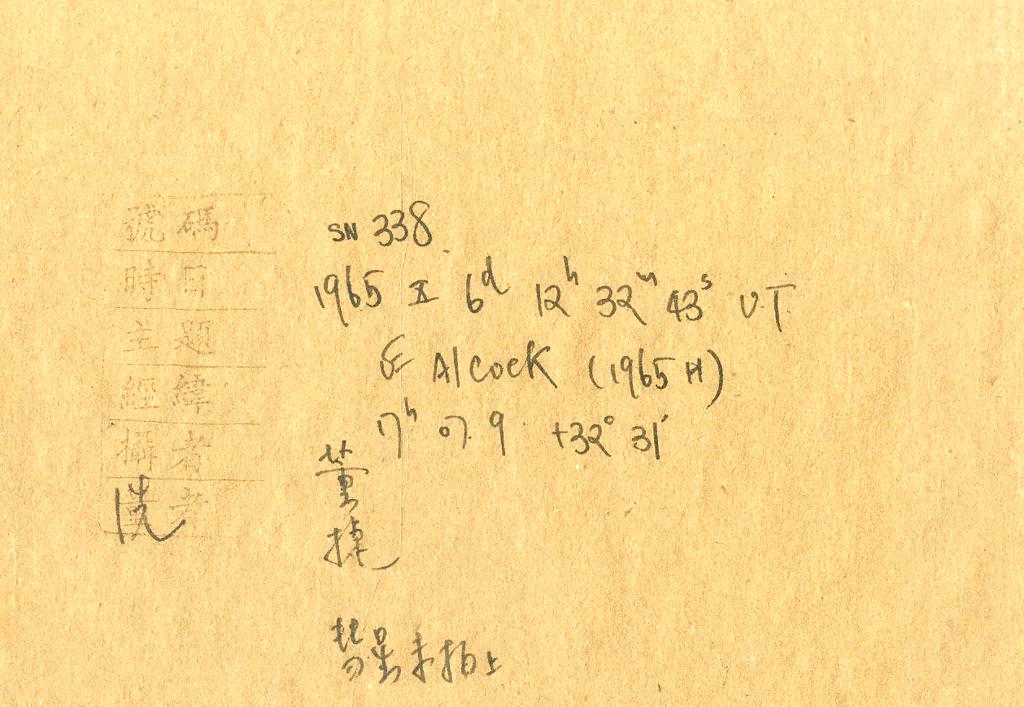 號碼 SN 338
時間 1965 X 6d 12h 32m 43s U.T.
主題 Alcock (1965 H)
經緯 17h 07.9 +32° 31′
攝者 董
洗者 掉
彗星未拍上